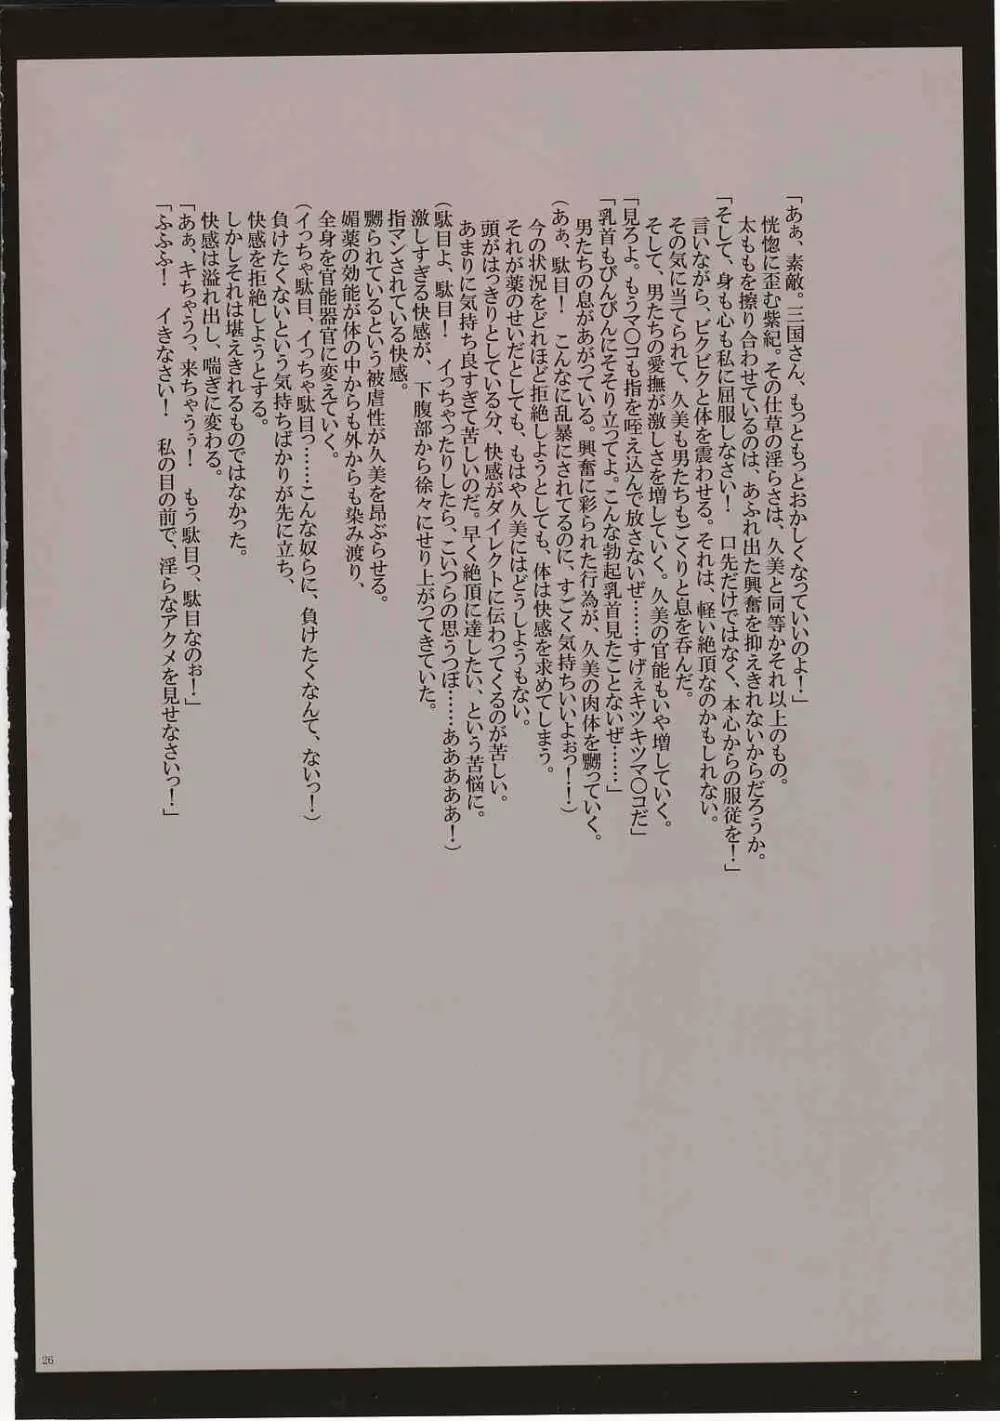 「あぁ、素敵。三国さん、もっともっとおかしくなっていいのよ！」
恍惚に歪む紫紀。その仕草の淫らさは、久美と同等かそれ以上のもの。
太ももを擦り合わせているのは、あふれ出た興奮を抑えきれないからだろうか。
「そして、身も心も私に屈服しなさい！　口先だけではなく、本心からの服従を！」
言いながら、ビクビクと体を震わせる。それは、軽い絶頂なのかもしれない。
その気に当てられて、久美も男たちもごくりと息を呑んだ。
そして、男たちの愛撫が激しさを増していく。久美の官能もいや増していく。
「見ろよ。もうマ〇コも指を咥え込んで放さないぜ……すげぇキツキツマ〇コだ」
「乳首もびんびんにそそり立ってよ。こんな勃起乳首見たことないぜ……」
男たちの息があがっている。興奮に彩られた行為が、久美の肉体を嬲っていく。
（あぁ、駄目！　こんなに乱暴にされてるのに、すごく気持ちいいよぉっ！！）
今の状況をどれほど拒絶しようとしても、体は快感を求めてしまう。
それが薬のせいだとしても、もはや久美にはどうしようもない。
頭がはっきりとしている分、快感がダイレクトに伝わってくるのが苦しい。
あまりに気持ち良すぎて苦しいのだ。早く絶頂に達したい、という苦悩に。
（駄目よ、駄目！　イっちゃったりしたら、こいつらの思うつぼ……ああああぁ！）
激しすぎる快感が、下腹部から徐々にせり上がってきていた。
指マンされている快感。
嬲られているという被虐性が久美を昂ぶらせる。
媚薬の効能が体の中からも外からも染み渡り、
全身を官能器官に変えていく。
（イっちゃ駄目、イっちゃ駄目っ……こんな奴らに、負けたくなんて、ないっ！）
負けたくないという気持ちばかりが先に立ち、
快感を拒絶しようとする。
しかしそれは堪えきれるものではなかった。
快感は溢れ出し、喘ぎに変わる。
「あぁ、キちゃうっ、来ちゃうぅ！　もう駄目っ、駄目なのぉ！」
「ふふふ！　イきなさい！　私の目の前で、淫らなアクメを見せなさいっ！」
26